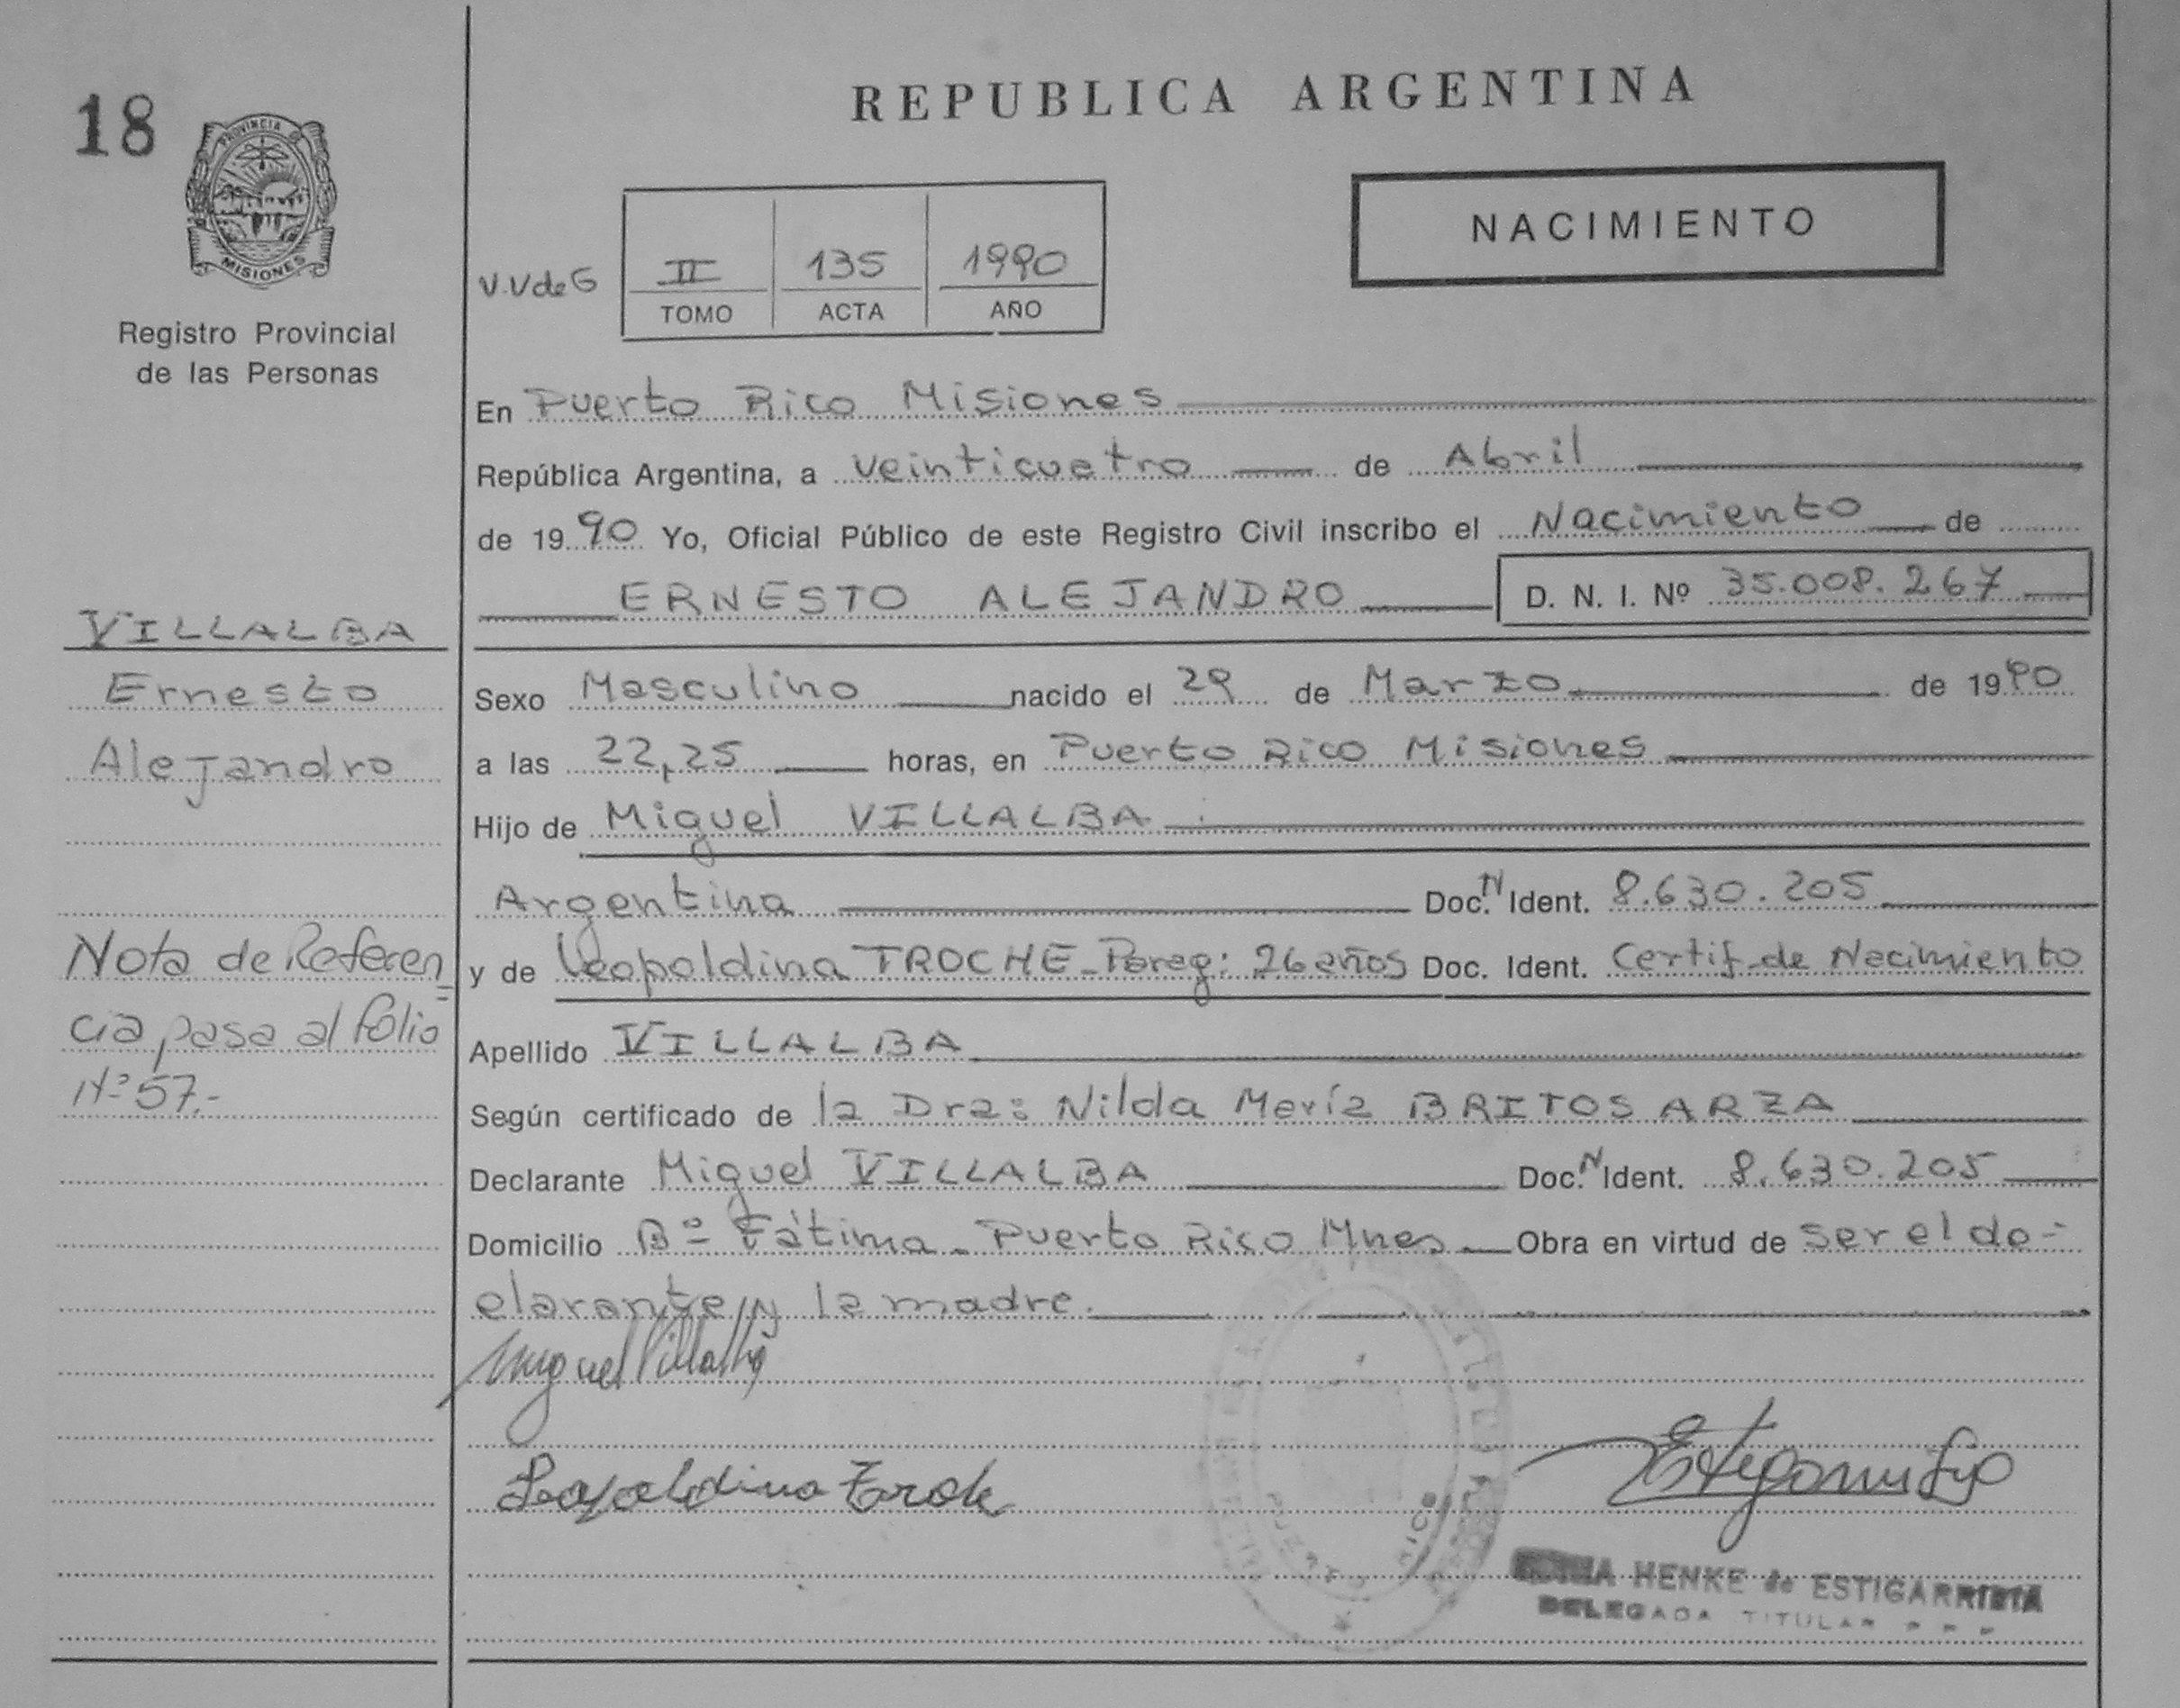 REPUBLICA ARGENTINA
18
PROVINCIA DE
MISIONES
Registro Provincial
de las Personas
NACIMIENTO
V.V de G
II 135 1990
TOMO ACTA AÑO
En Puerto Rico Misiones
República Argentina, a veinticuatro de Abril
de 1990 Yo, Oficial Público de este Registro Civil inscribo el Nacimiento de
ERNESTO ALEJANDRO D. N. I. Nº 35.008.267
VILLALBA
Ernesto
Alejandro
Sexo Masculino nacido el 29 de Marzo de 1990
a las 22,25 horas, en Puerto Rico Misiones
Hijo de Miguel VILLALBA
Argentina Doc. N Ident. 8.630.205
y de Leopoldina TROCHE - Parag: 26 años Doc. Ident. Certif. de Nacimiento
Nota de Referen
cia pasa al folio
Nº 57.-
Apellido VILLALBA
Según certificado de la Dra: Nilda María BRITOS ARZA
Declarante Miguel VILLALBA Doc. N Ident. 8.630.205
Domicilio Bº Fátima - Puerto Rico Mnes Obra en virtud de ser el de-
clarante y la madre.
Miguel Villalba
Leopoldina Troche
PUERTO RICO
HENKE de ESTIGARRIBIA
DELEGADA TITULAR